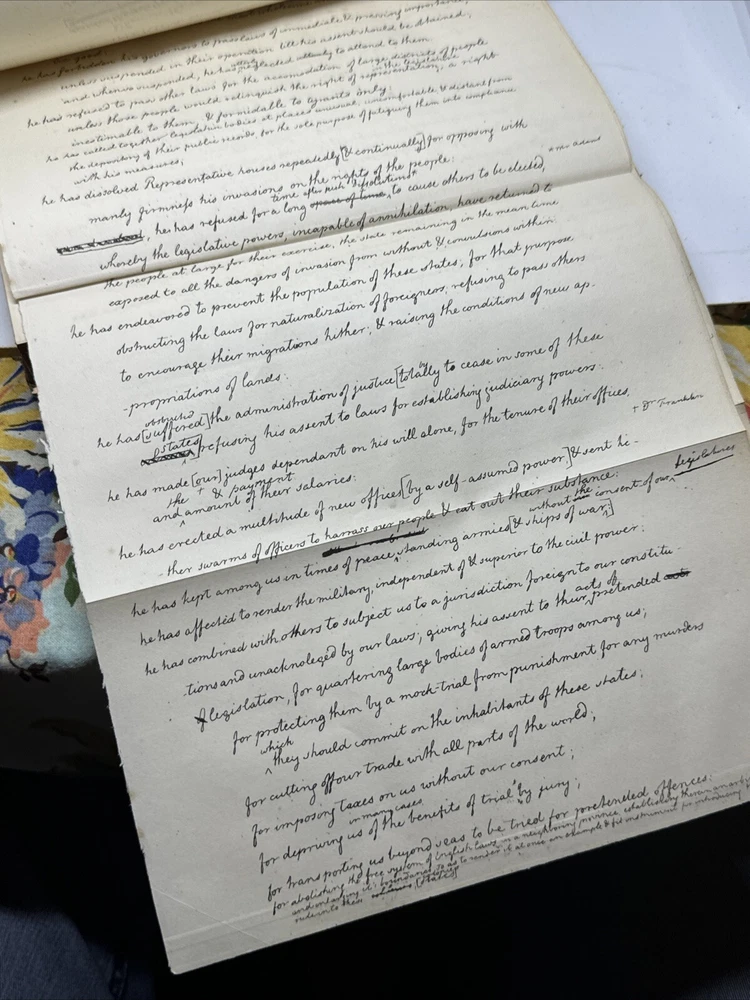 he has forbidden his governors to pass laws of immediate & pressing importance,
unless suspended in their operation till his assent should be obtained;
and when so suspended, he has neglected utterly to attend to them.
he has refused to pass other laws for the accomodation of large districts of people
unless those people would relinquish the right of representation, a right
in the legislature
inestimable to them, & formidable to tyrants only:
he has called together legislative bodies at places unusual, uncomfortable, & distant from
the depository of their public records, for the sole purpose of fatiguing them into compliance
with his measures;
he has dissolved Representative houses repeatedly [& continually] for opposing with
manly firmness his invasions on the rights of the people:
time after such dissolutions
he has refused for a long space of time, to cause others to be elected,
whereby the legislative powers, incapable of annihilation, have returned to
the people at large for their exercise, the state remaining in the mean time
exposed to all the dangers of invasion from without & convulsions within:
he has endeavored to prevent the population of these states; for that purpose
obstructing the laws for naturalization of foreigners, refusing to pass others
to encourage their migrations hither; & raising the conditions of new ap-
-propriations of lands:
obstructed by
he has [suffered] the administration of justice [totally to cease in some of these
states] refusing his assent to laws for establishing judiciary powers:
he has made [our] judges dependant on his will alone, for the tenure of their offices,
+ Dr Franklin
the + & payment
and amount of their salaries:
he has erected a multitude of new offices [by a self-assumed power] & sent hi-
-ther swarms of officers to harrass our people & eat out their substance:
without the consent of our legislatures
he has kept among us in times of peace standing armies [& ships of war]
he has affected to render the military, independent of & superior to the civil power:
he has combined with others to subject us to a jurisdiction foreign to our constitu-
acts of
-tions and unacknoleged by our laws; giving his assent to their pretended acts
of legislation, for quartering large bodies of armed troops among us;
for protecting them by a mock-trial from punishment for any murders
which
they should commit on the inhabitants of these states;
for cutting off our trade with all parts of the world;
for imposing taxes on us without our consent;
in many cases
for depriving us of the benefits of trial by jury;
for transporting us beyond seas to be tried for pretended offences:
for abolishing the free system of English laws in a neighboring province establishing therein an arbitrary
and enlarging it's boundaries so as to render it at once an example & fit instrument for introducing
rule into these colonies [states]